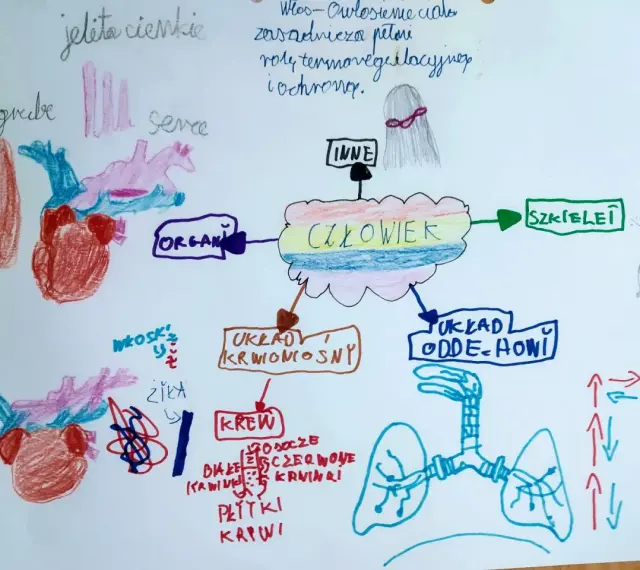 Włos-Owłosienie ciała
zasadniczo pełni
rolę termoregulacyjną
i ochronną.
jelita cienkie
grube
serce
INNE
CZŁOWIEK
SZKIELET
ORGANY
UKŁAD
KRWIONOŚNY
UKŁAD
ODDECHOWY
WŁOSKI
ŻYŁA
KREW
OSOCZE
BIAŁE
KRWINKI
CZERWONE
KRWINKI
PŁYTKI
KRWI